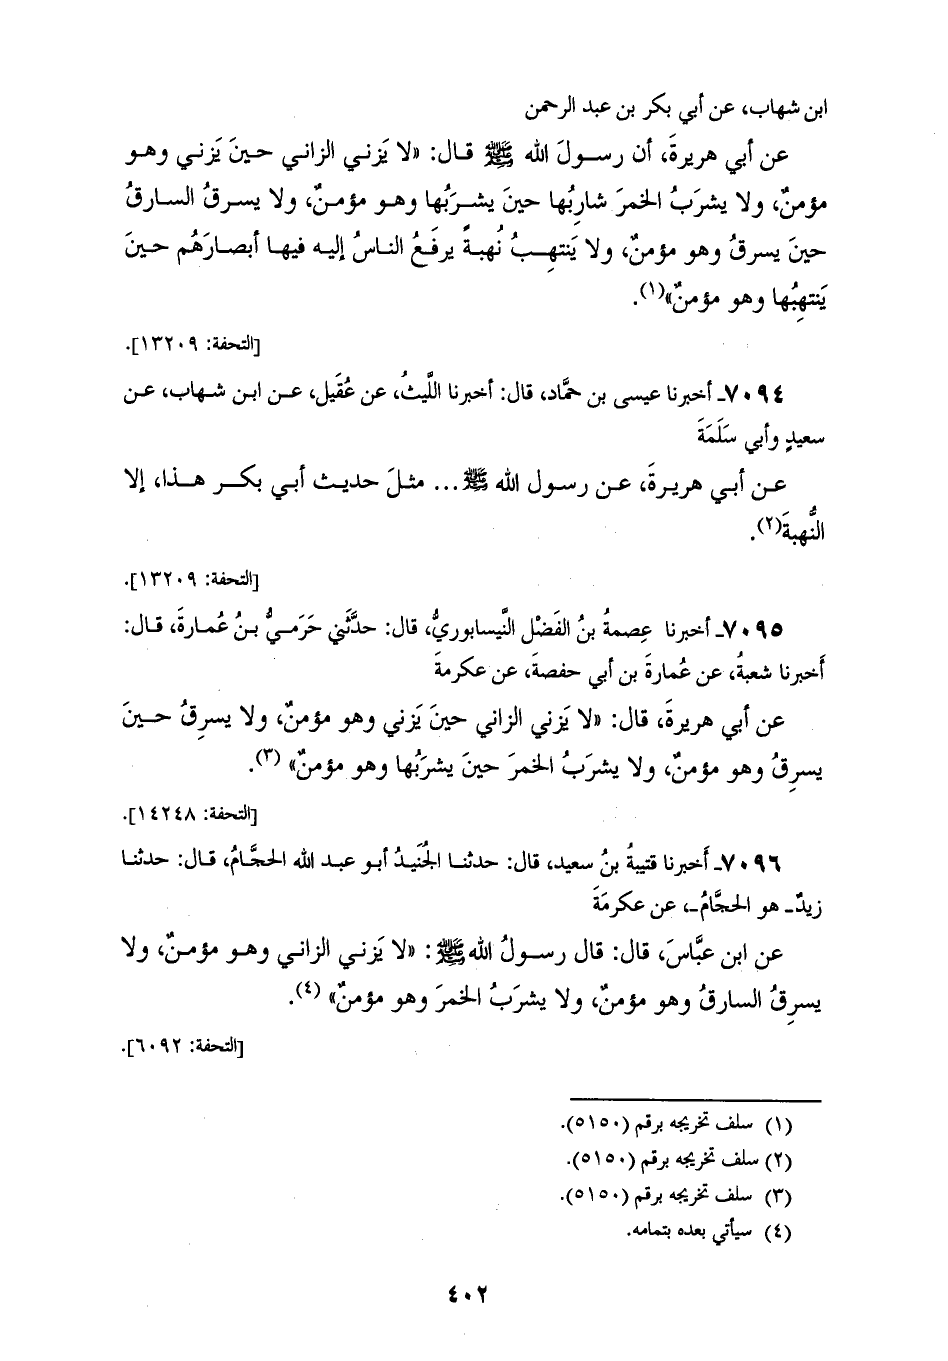 ابن شهاب، عن أبي بكر بن عبد الرحمن
عن أبي هريرةَ، أن رسولَ الله ﷺ قال: «لا يَزني الزاني حينَ يَزني وهو
مؤمنٌ، ولا يشرَبُ الخمرَ شاربُها حينَ يشرَبُها وهو مؤمنٌ، ولا يسرقُ السارقُ
حينَ يسرقُ وهو مؤمنٌ، ولا يَنتهِبُ نُهبةً يرفَعُ الناسُ إليه فيها أبصارَهُم حينَ
يَنتهِبُها وهو مؤمنٌ»(١).
[التحفة: ١٣٢٠٩].
٧٠٩٤ـ أخبرنا عيسى بن حمَّاد، قال: أخبرنا اللَّيثُ، عن عُقَيل، عن ابن شهاب، عن
سعيدٍ وأبي سَلَمَةَ
عن أبي هريرةَ، عن رسول الله ﷺ... مثلَ حديث أبي بكر هذا، إلا
النُّهبةَ(٢).
[التحفة: ١٣٢٠٩].
٧٠٩٥ـ أخبرنا عِصمةُ بنُ الفَضْل النَّيسابوريُّ، قال: حدَّثَني حَرَميُّ بنُ عُمارةَ، قال:
أَخبرنا شعبةُ، عن عُمارةَ بن أبي حفصةَ، عن عكرمةَ
عن أبي هريرةَ، قال: «لا يَزني الزاني حينَ يَزني وهو مؤمنٌ، ولا يسرِقُ حينَ
يسرِقُ وهو مؤمنٌ، ولا يشرَبُ الخمرَ حينَ يشرَبُها وهو مؤمنٌ» (٣).
[التحفة: ١٤٢٤٨].
٧٠٩٦ـ أَخبرنا قتيبةُ بنُ سعيد، قال: حدثنا الجُنَيدُ أبو عبد الله الحجَّامُ، قال: حدثنا
زيدٌ ـ هو الحجَّامُ ـ، عن عكرمَةَ
عن ابن عبَّاسَ، قال: قال رسولُ الله ﷺ: «لا يَزني الزاني وهو مؤمنٌ، ولا
يسرِقُ السارقُ وهو مؤمنٌ، ولا يشرَبُ الخمرَ وهو مؤمنٌ» (٤).
[التحفة: ٦٠٩٢].
(١) سلف تخريجه برقم (٥١٥٠).
(٢) سلف تخريجه برقم (٥١٥٠).
(٣) سلف تخريجه برقم (٥١٥٠).
(٤) سيأتي بعده بتمامه.
٤٠٢